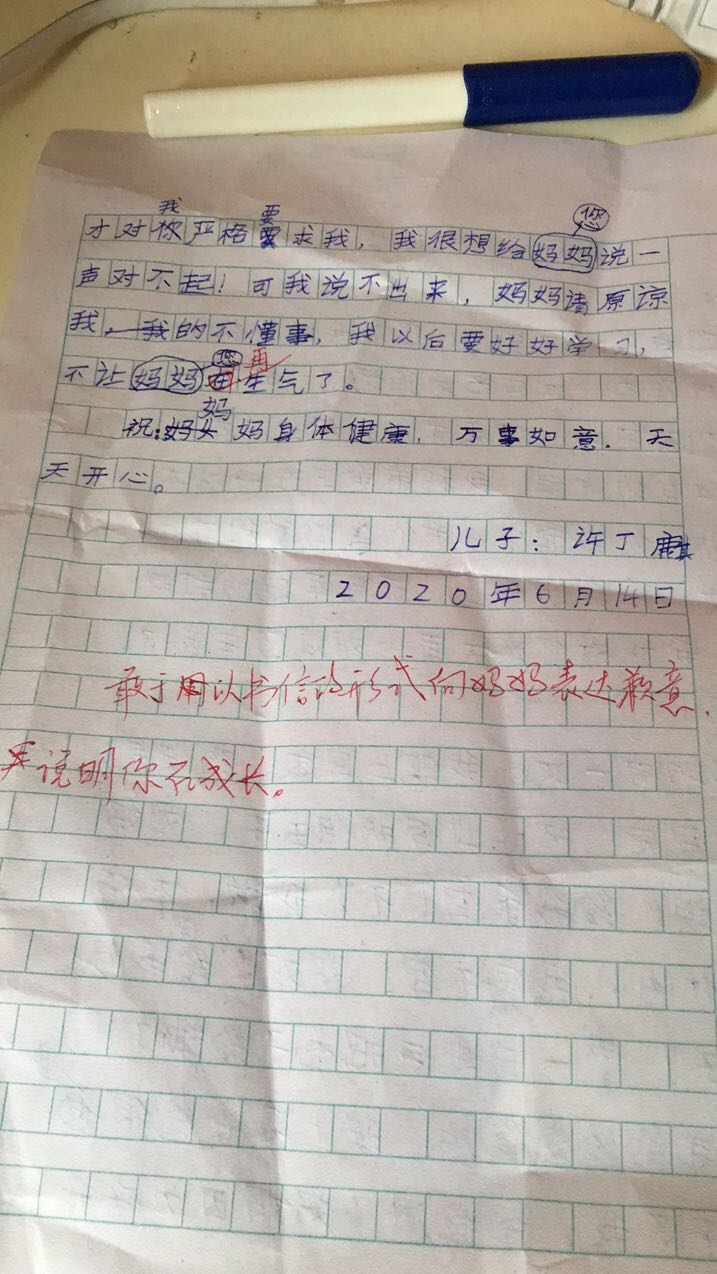 我 要 您
才对你严格要求我，我很想给妈妈说一
声对不起！可我说不出来，妈妈请原谅
我，我的不懂事，我以后要好好学习，
您 再
不让妈妈再生气了。
妈
祝：妈妈身体健康，万事如意，天
天开心。
儿子：许丁麒
2020年6月14日
敢于用以书信的形式向妈妈表达歉意，
说明你在成长。